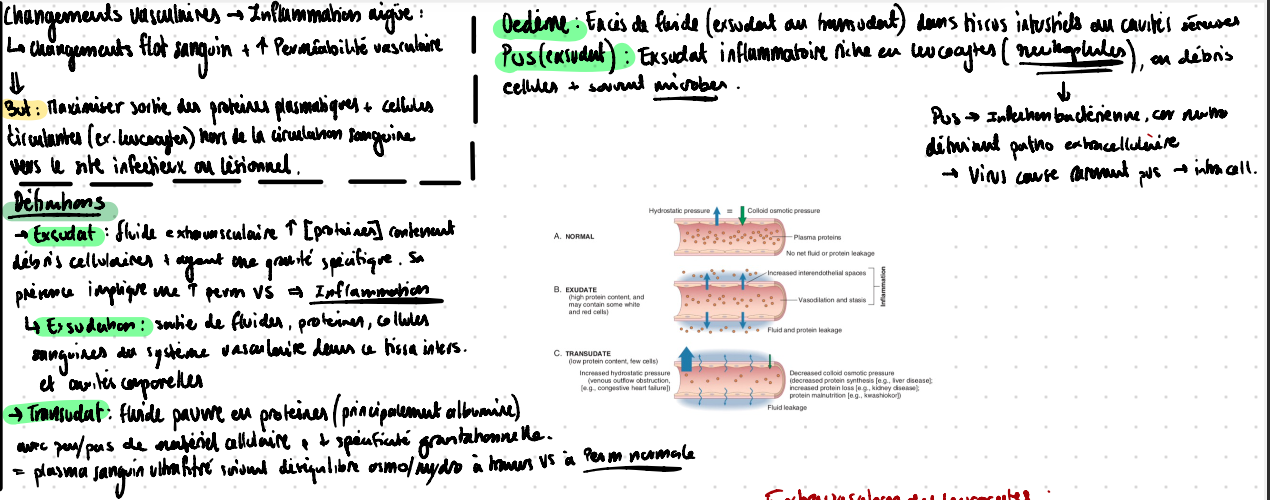 Changements vasculaires → Inflammation aigüe :
↳ changements flot sanguin + ↑ Perméabilité vasculaire
⇓
But : Maximiser sortie des protéines plasmatiques + cellules
circulantes (ex. leucocytes) hors de la circulation sanguine
vers le site infectieux ou lésionnel.
Définitions
→ Exsudat : fluide extravasculaire ↑ [protéines] contenant
débris cellulaires + ayant une gravité spécifique. Sa
présence implique une ↑ perm VS ⇒ Inflammation
↳ Exsudation : sortie de fluides, protéines, cellules
sanguines du système vasculaire dans le tissu inters.
et cavités corporelles
→ Transudat : fluide pauvre en protéines (principalement albumine)
avec peu/pas de matériel cellulaire, ↓ spécificité gravitationnelle.
= plasma sanguin ultrafiltré suivant déséquilibre osmo/hydro à travers VS à Perm normale
Oedème : Excès de fluide (exsudat ou transudat) dans tissus interstitiels ou cavités séreuses
Pus (exsudat) : Exsudat inflammatoire riche en leucocytes (neutrophiles), en débris
cellules + souvent microbes.
↓
Pus → Infection bactérienne, car neutro
détruisent patho extracellulaire
→ Virus cause rarement pus → intracell.
Hydrostatic pressure = Colloid osmotic pressure
A. NORMAL
Plasma proteins
No net fluid or protein leakage
Increased interendothelial spaces
B. EXUDATE
(high protein content, and
may contain some white
and red cells)
Vasodilation and stasis
Inflammation
Fluid and protein leakage
C. TRANSUDATE
(low protein content, few cells)
Increased hydrostatic pressure
(venous outflow obstruction,
[e.g., congestive heart failure])
Decreased colloid osmotic pressure
(decreased protein synthesis [e.g., liver disease];
increased protein loss [e.g., kidney disease];
protein malnutrition [e.g., kwashiorkor])
Fluid leakage